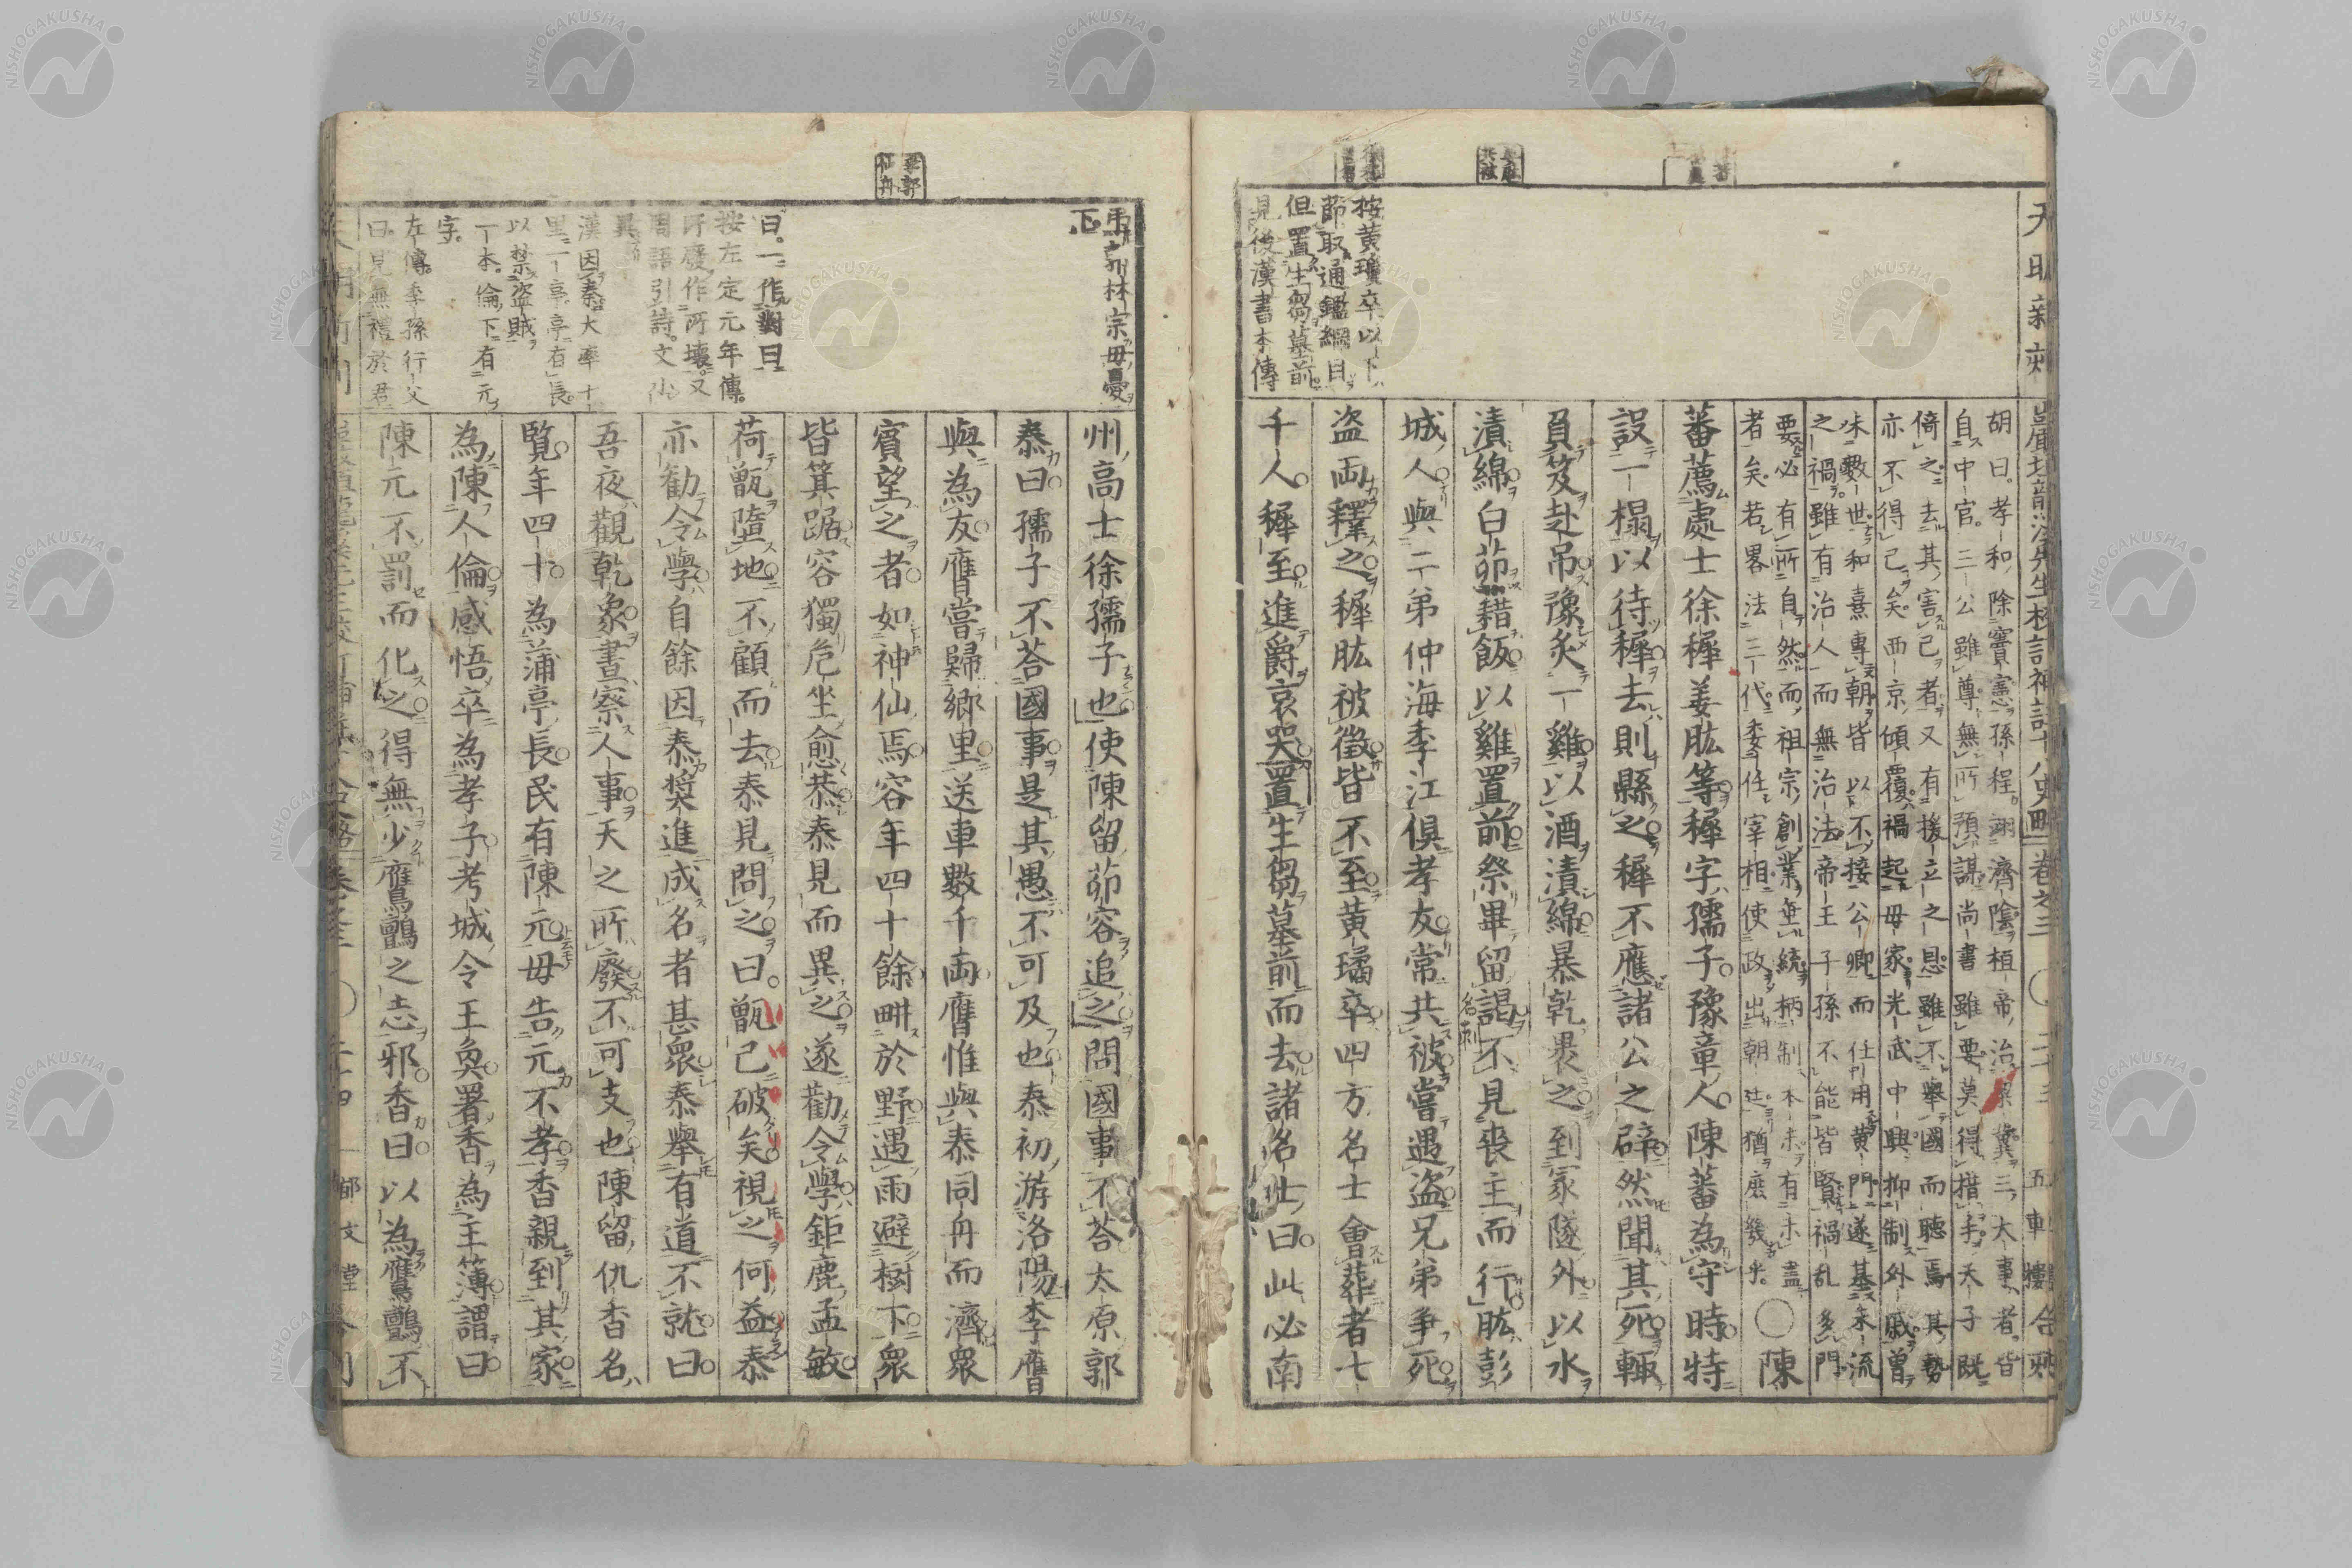 胡曰。孝和除竇憲孫程。謝濟陰植帝治梁冀三大事者皆
自中官。三公雖尊無所預謀尚書雖要莫得措手天子既
倚之去其害己者又有援立之恩雖不舉國而聽焉其勢
亦不得已矣。西京傾覆禍起母家光武中興抑制外戚曾
未數世和熹專朝皆以不接公卿而任用黄門遂基末流
之禍雖有治人而無治法帝王子孫不能皆賢禍乱多門
要必有所自然而祖宗創業垂統柄制本末有未盡
者矣。若畧法三代委任宰相使政出朝廷猶庶幾乎。〇陳
蕃薦處士徐穉姜肱等穉字孺子豫章人陳蕃為守時特
設一榻以待穉去則縣之穉不應諸公之辟然聞其死輒
負笈赴吊豫炙一雞以酒漬綿暴乾裹之到冢隧外以水
漬綿白茆藉飯以雞置前祭畢留謁不見喪主而行肱彭
城人與二弟仲海季江俱孝友常共被嘗遇盗兄弟争死
盗兩釋之穉肱被徵皆不至黄瓊卒四方名士會葬者七
千人。穉至進爵哀哭置生芻墓前而去諸名士曰此必南
按黄瓊卒以下
節取通鑑綱目
但置生芻墓前
見後漢書本傳
州高士徐孺子也使陳留茆容追之問國事不荅太原郭
泰曰孺子不荅國事是其愚不可及也泰初游洛陽李膺
與為友膺嘗歸鄉里送車數千兩膺惟與泰同舟而濟衆
賓望之者如神仙焉容年四十餘畊於野遇雨避樹下衆
皆箕踞容獨危坐愈恭泰見而異之遂勸令學鉅鹿孟敏
荷甑墮地不顧而去泰見問之曰。甑已破矣視之何益泰
亦勸令學自餘因泰奬進成名者甚衆泰舉有道不就曰
吾夜觀乾象晝察人事天之所廢不可支也陳留仇香名
覽年四十為蒲亭長民有陳元母告元不孝香親到其家
為陳人倫感悟卒為孝子考城令王奐署香為主簿謂曰
陳元不罰而化之得無少鷹鸇之志邪香曰以為鷹鸇不
郭林宗母憂
下
曰。一作對曰
按左定元年傳。
所廢作所壞又
周語引詩。文
異
漢因秦大率十
里一亭亭有長。
以禁盗賊
一本。倫下有元
字。
左傳。季孫行父
曰。見無禮於君